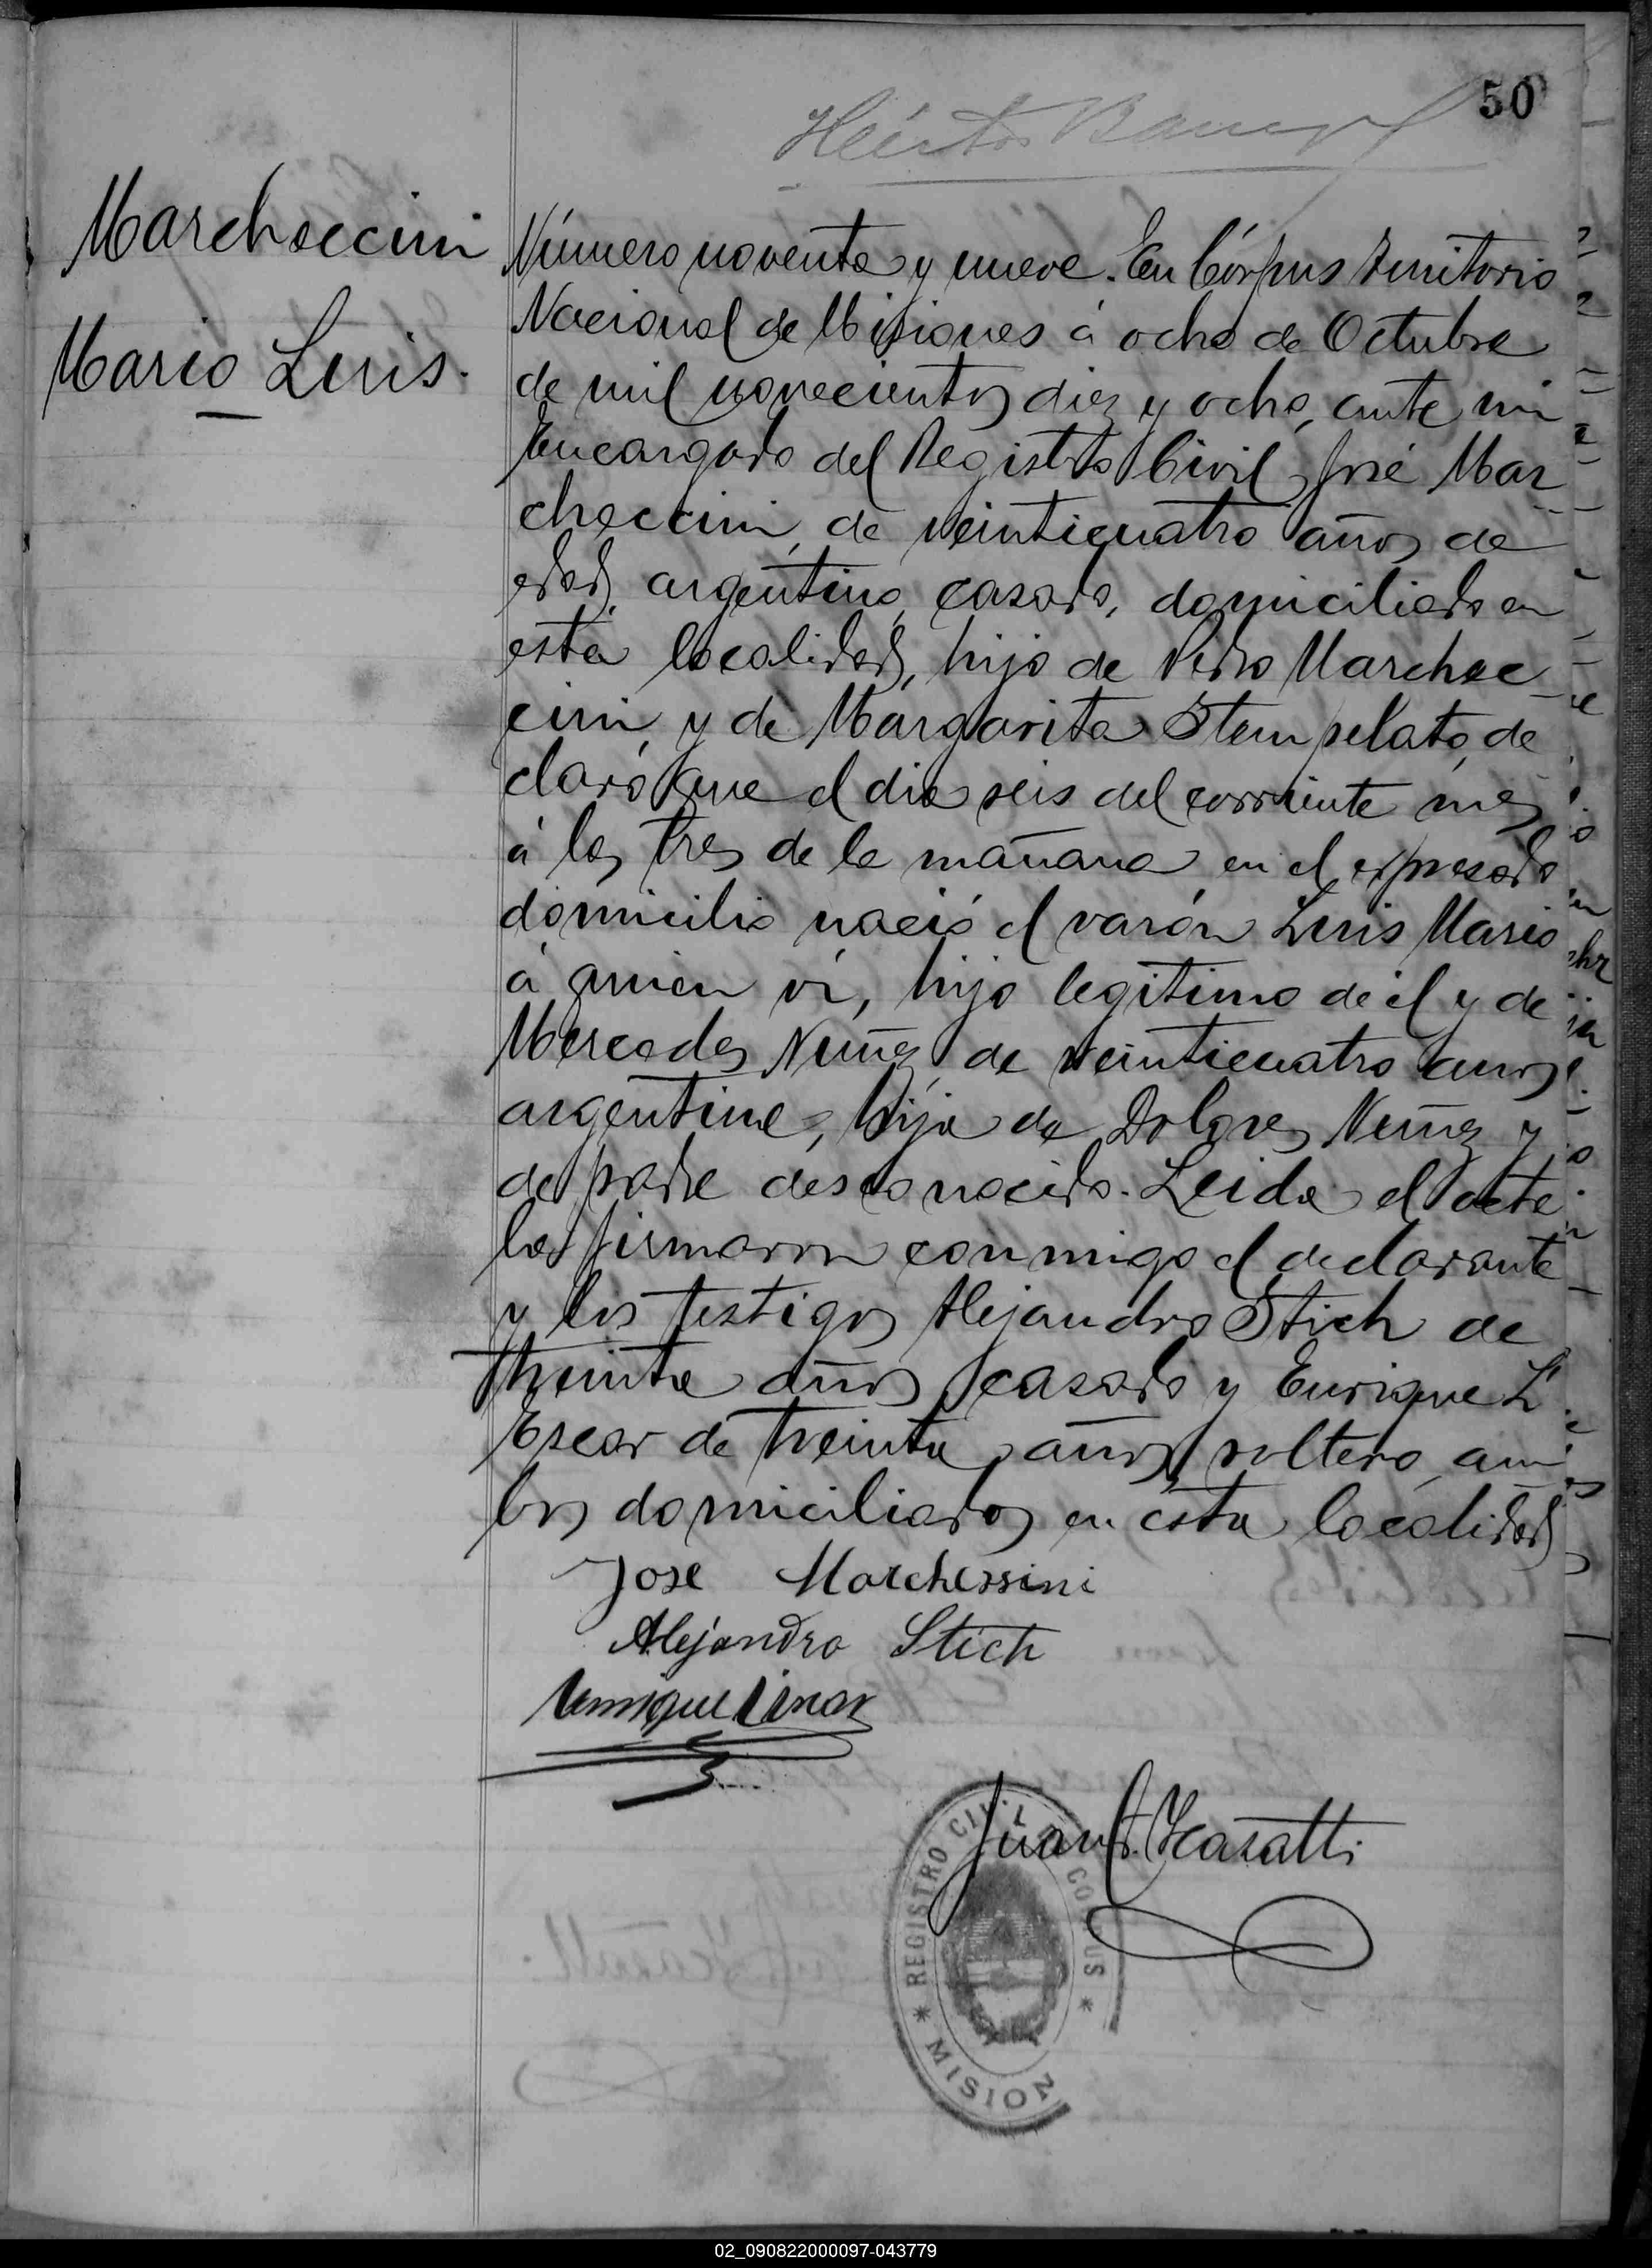 50
Héctor
Marcheccini
Mario Luis.
Número noventa y nueve. En Córpus Territorio
Nacional de Misiones á ocho de Octubre
de mil novecientos diez y ocho, ante mi
Encargado del Registro Civil, José Mar
checcini, de veinticuatro años de
edad, argentino, casado, domiciliado en
esta localidad, hijo de Pedro Marchec
cini, y de Margarita Stempelato, de
claró que el dia seis del corriente mes
á las tres de la mañana en el expresado
domicilio nació el varón Luis Mario
á quien ví, hijo legitimo de él y de
Mercedes Nuñez de veinticuatro años
argentina, hija de Dolores Nuñez y
de padre desconocido. Leida el acta
la firmaron conmigo el declarante
y los testigos Alejandro Stich de
treinta años, casado y Enrique L
de treinta años, soltero, am
bos domiciliados en ésta localidad
Jose Marchessini
Alejandro Stich
Enrique
Juan
REGISTRO CIVIL CORPUS
* MISION *
02_090822000097-043779